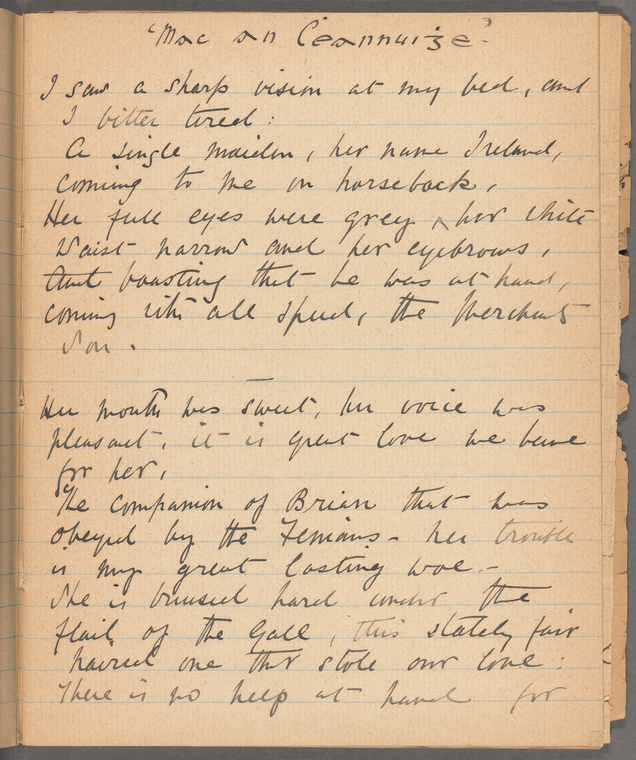 "Mac an Ceannuiġe"
I saw a sharp vision at my bed, and
I bitter tired:
A single maiden, her name Ireland,
coming to me on horseback,
Her full eyes were grey, ^ her white
waist narrow and her eyebrows,
And boasting that he was at hand,
coming with all speed, the Merchants
Son.
Her mouth was sweet, her voice was
pleasant, it is great love we have
for her,
The companion of Brian that was
obeyed by the Fenians - her trouble
is my great lasting woe. -
She is bruised hard under the
flail of the Gall, this stately fair
haired one that stole our love:
There is no help at hand for